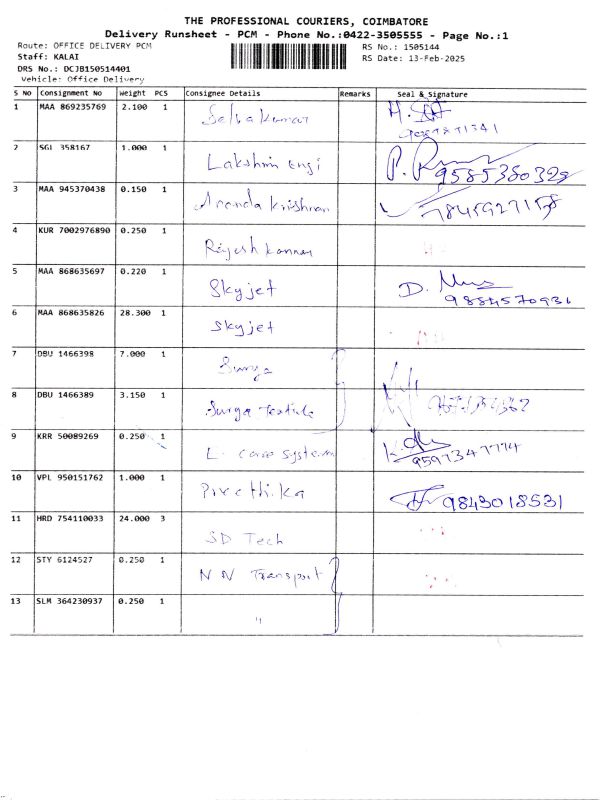 THE PROFESSIONAL COURIERS, COIMBATORE
Delivery Runsheet - PCM - Phone No.:0422-3505555 - Page No.:1
Route: OFFICE DELIVERY PCM RS No.: 1505144
Staff: KALAI RS Date: 13-Feb-2025
DRS No.: DCJB150514401
Vehicle: Office Delivery
S No Consignment No Weight PCS Consignee Details Remarks Seal & Signature
1 MAA 869235769 2.100 1 Selvakumar
2 SGL 358167 1.000 1 Lakshmi Engi 9585380329
3 MAA 945370438 0.150 1 Ananda Krishnan 7845927158
4 KUR 7002976890 0.250 1 Rajesh kannan
5 MAA 868635697 0.220 1 Skyjet 9884570931
6 MAA 868635826 28.300 1 Skyjet
7 DBU 1466398 7.000 1 Surya
8 DBU 1466389 3.150 1 Surya Textile
9 KRR 50089269 0.250 1 E. care system 9597347774
10 VPL 950151762 1.000 1 Preethika 9843018531
11 HRD 754110033 24.000 3 SD Tech
12 STY 6124527 0.250 1 N N Transport
13 SLM 364230937 0.250 1 "